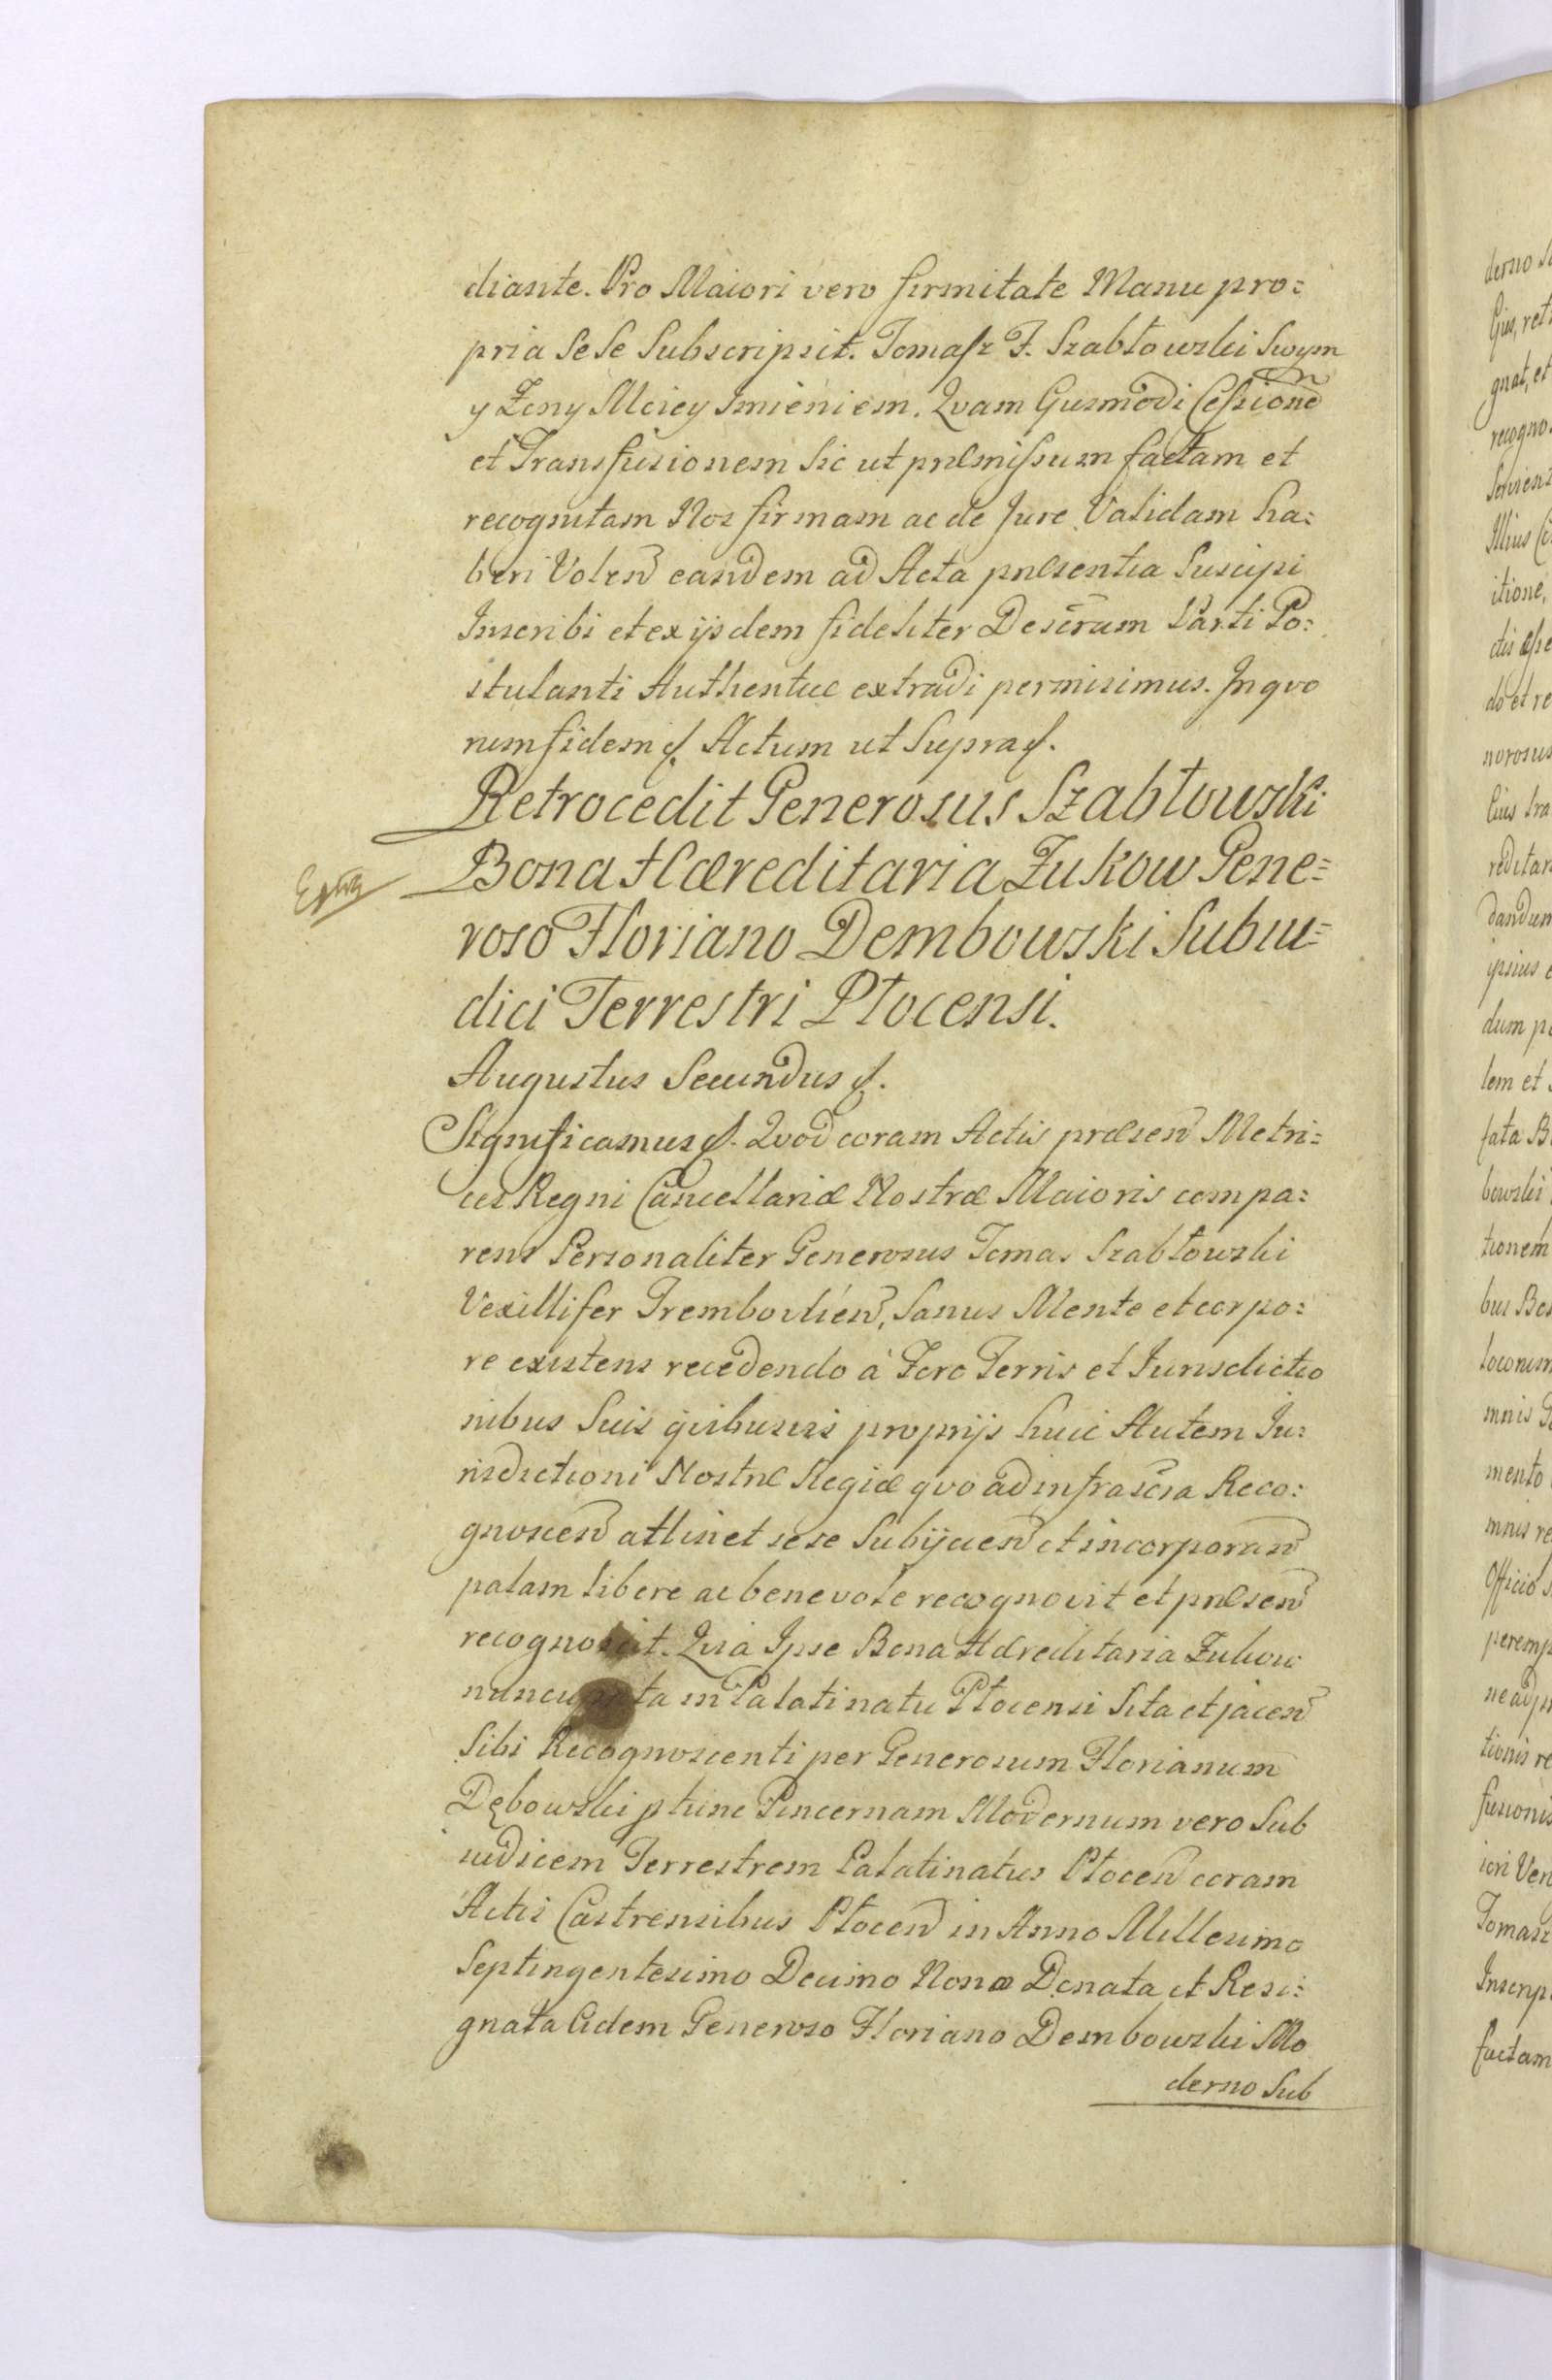 diante. Pro Maiori vero firmitate Manu pro=
pria sese Subscripsit. Tomasz F. Szabłowski Swym
y Zony Moiey Imieniem. Qvam Eiusmodi Cessione
et Transfusionem sic ut præmissum factam et
recognitam Nos firmam ac de Jure Validam ha=
beri Volen eandem ad Acta præsentia Suscipi
Inscribi et ex ijsdem fideliter Descrum Parti Po=
stulanti Authentice extradi permisimus. In quo
rum fidem &. Actum ut Supra &.
Retrocedit Generosus Szabłowski
Bona Hæreditaria Zukow Gene=
roso Floriano Dembowski Subiu=
dici Terrestri Płocensi.
Augustus Secundus &.
Significamus &. Qvod coram Actis præsen Metri=
ces Regni Cancellariæ Nostræ Maioris compa=
rens Personaliter Generosus Tomas Szabłowski
Vexillifer Trembovlien, Sanus Mente et corpo=
re existens recedendo à Foro Terris et Jurisdictio
nibus Suis qvibusvis proprijs huic Autem Ju=
risdictioni Nostræ Regiæ qvo ad infrascra Reco=
gnoscen attinet sese Subijcien et incorporan
palam libere ac benevole recognovit et præsen
recognoscit. Qvia Ipse Bona Hæreditaria Zukow
nuncupata in Palatinatu Płocensi Sita et jacen
Sibi Recognoscenti per Generosum Florianum
Dębowski ptunc Pincernam Modernum vero Sub
iudicem Terrestrem Palatinatus Płocen coram
Actis Castrensibus Płocen in Anno Millesimo
Septingentesimo Decimo Nono Donata et Resi=
gnata Eidem Generoso Floriano Dembowski Mo
derno Sub